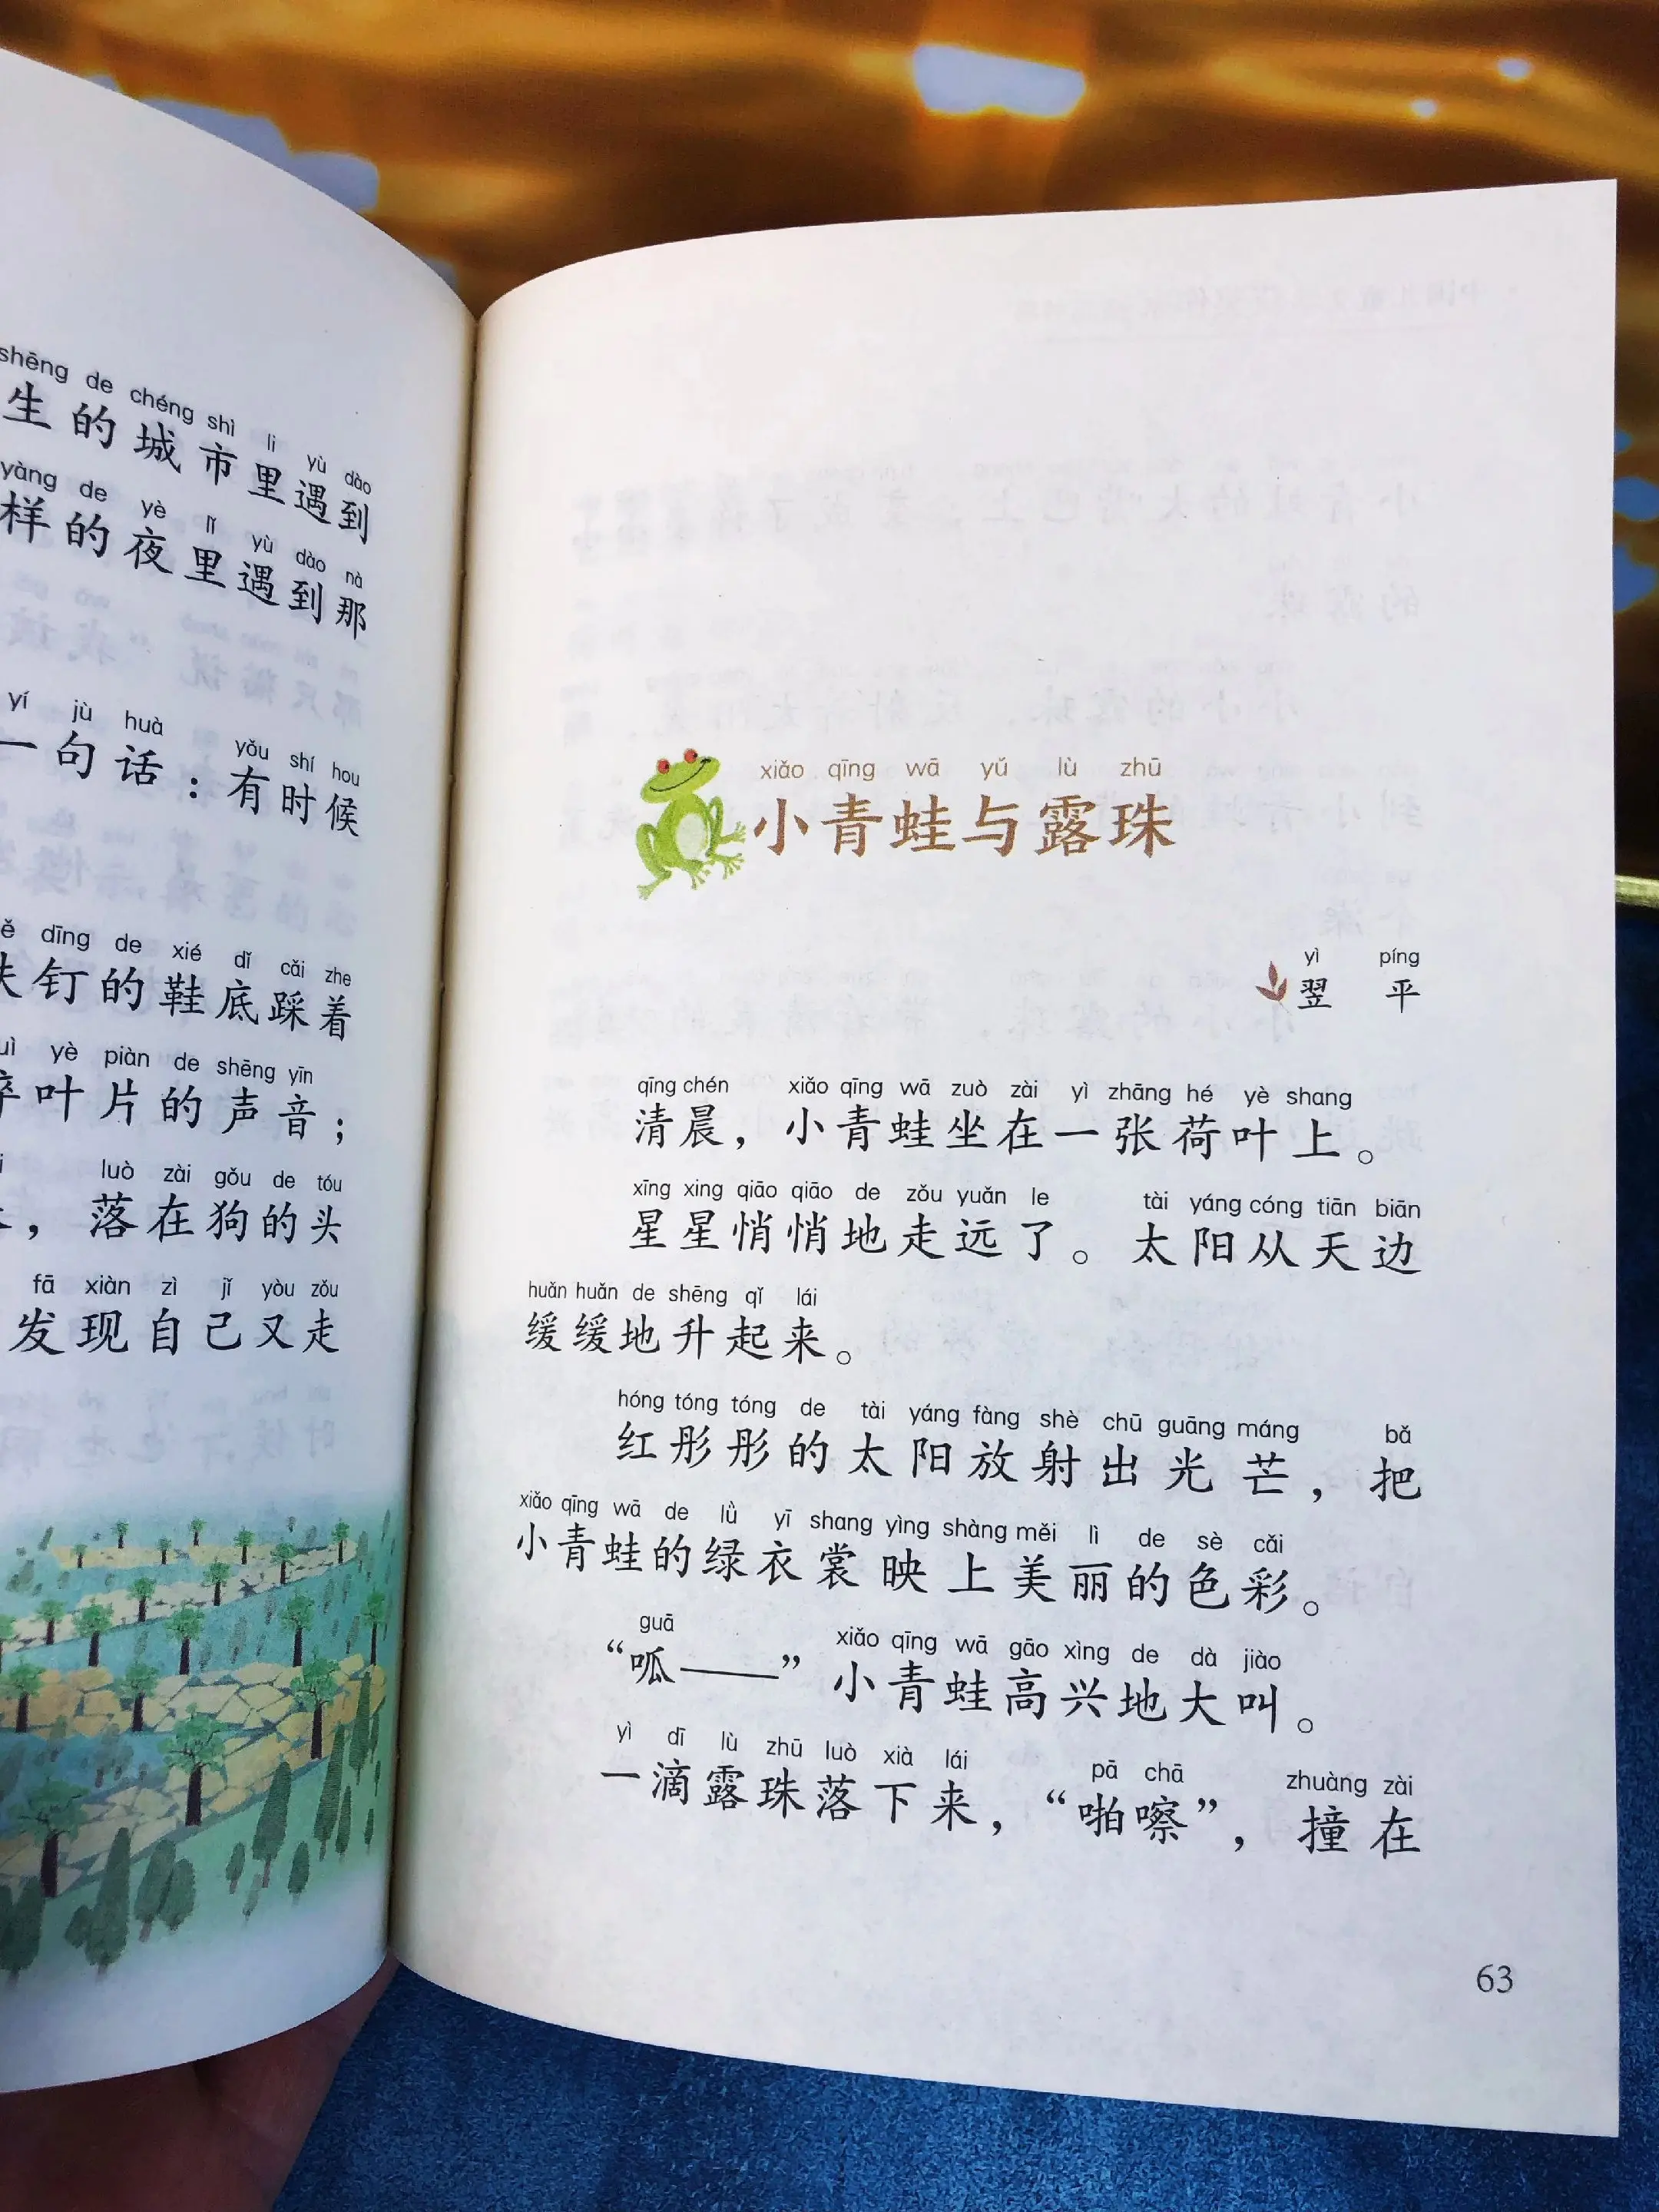 shēng de chéng shì li yù dào
生的城市里遇到
yàng de yè lǐ yù dào nà
样的夜里遇到那
yí jù huà yǒu shí hou
一句话：有时候
dīng de xié dǐ cǎi zhe
钉的鞋底踩着
yè piàn de shēng yīn
叶片的声音；
luò zài gǒu de tóu
，落在狗的头
fā xiàn zì jǐ yòu zǒu
发现自己又走
xiǎo qīng wā yǔ lù zhū
小青蛙与露珠
yì píng
翌平
qīng chén xiǎo qīng wā zuò zài yì zhāng hé yè shang
清晨，小青蛙坐在一张荷叶上。
xīng xing qiāo qiāo de zǒu yuǎn le tài yáng cóng tiān biān
星星悄悄地走远了。太阳从天边
huǎn huǎn de shēng qǐ lái
缓缓地升起来。
hóng tóng tóng de tài yáng fàng shè chū guāng máng bǎ
红彤彤的太阳放射出光芒，把
xiǎo qīng wā de lǜ yī shang yìng shàng měi lì de sè cǎi
小青蛙的绿衣裳映上美丽的色彩。
guā xiǎo qīng wā gāo xìng de dà jiào
“呱——”小青蛙高兴地大叫。
yì dī lù zhū luò xià lái pā chā zhuàng zài
一滴露珠落下来，“啪嚓”，撞在
63